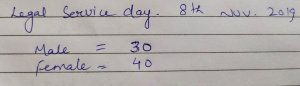 Legal Service day. 8th Nov. 2019
Male = 30
Female = 40